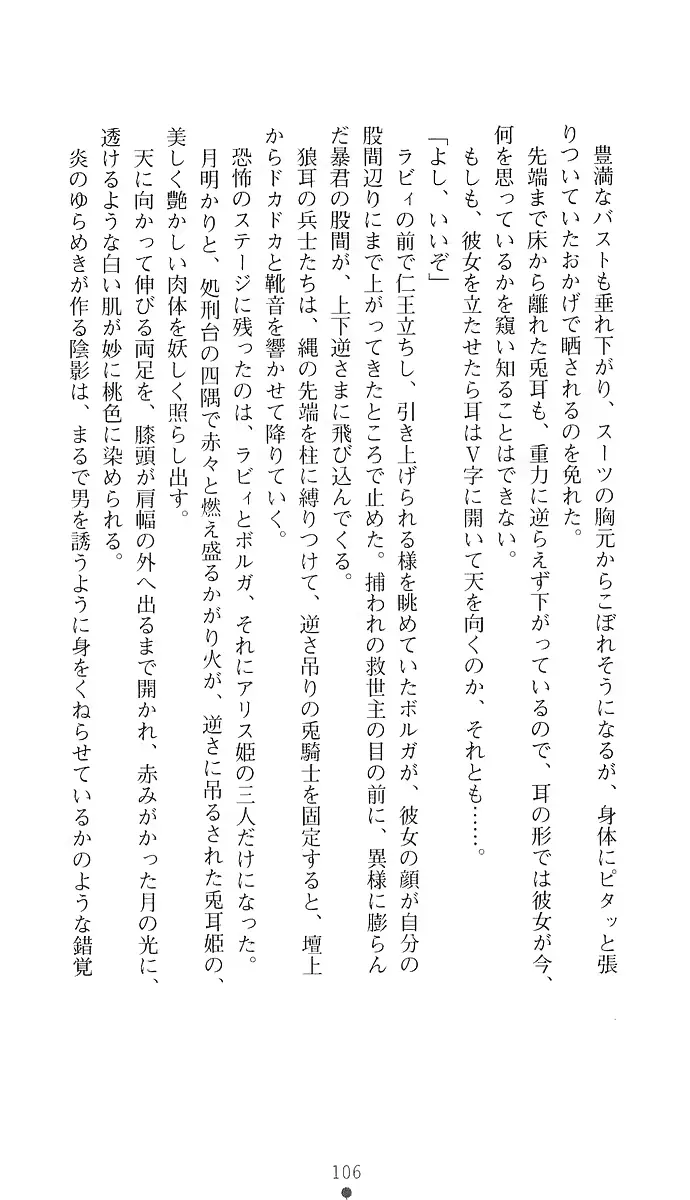 豊満なバストも垂れ下がり、スーツの胸元からこぼれそうになるが、身体にピタッと張
りついていたおかげで晒されるのを免れた。
　先端まで床から離れた兎耳も、重力に逆らえず下がっているので、耳の形では彼女が今、
何を思っているかを窺い知ることはできない。
　もしも、彼女を立たせたら耳はＶ字に開いて天を向くのか、それとも……。
「よし、いいぞ」
　ラビィの前で仁王立ちし、引き上げられる様を眺めていたボルガが、彼女の顔が自分の
股間辺りにまで上がってきたところで止めた。捕われの救世主の目の前に、異様に膨らん
だ暴君の股間が、上下逆さまに飛び込んでくる。
　狼耳の兵士たちは、縄の先端を柱に縛りつけて、逆さ吊りの兎騎士を固定すると、壇上
からドカドカと靴音を響かせて降りていく。
　恐怖のステージに残ったのは、ラビィとボルガ、それにアリス姫の三人だけになった。
　月明かりと、処刑台の四隅で赤々と燃え盛るかがり火が、逆さに吊るされた兎耳姫の、
美しく艶かしい肉体を妖しく照らし出す。
　天に向かって伸びる両足を、膝頭が肩幅の外へ出るまで開かれ、赤みがかった月の光に、
透けるような白い肌が妙に桃色に染められる。
　炎のゆらめきが作る陰影は、まるで男を誘うように身をくねらせているかのような錯覚
106